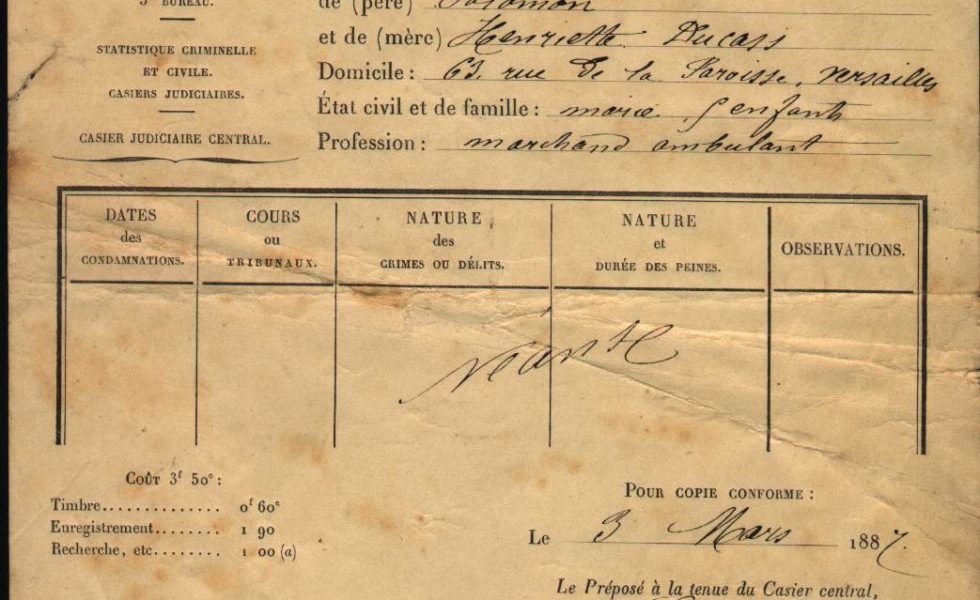 3e BUREAU.
STATISTIQUE CRIMINELLE
ET CIVILE.
CASIERS JUDICIAIRES.
CASIER JUDICIAIRE CENTRAL.
de (père) Salomon
et de (mère) Henriette Ducass
Domicile : 63, rue De la Paroisse, Versailles
État civil et de famille : marié 5 enfants
Profession : marchand ambulant
DATES
des
CONDAMNATIONS.
COURS
ou
TRIBUNAUX.
NATURE
des
CRIMES OU DÉLITS.
NATURE
et
DURÉE DES PEINES.
OBSERVATIONS.
Néant
COÛT 3f 50c :
Timbre.............. 0f 60c
Enregistrement....... 1 90
Recherche, etc....... 1 00 (a)
POUR COPIE CONFORME :
Le 3 Mars 1887.
Le Préposé à la tenue du Casier central,